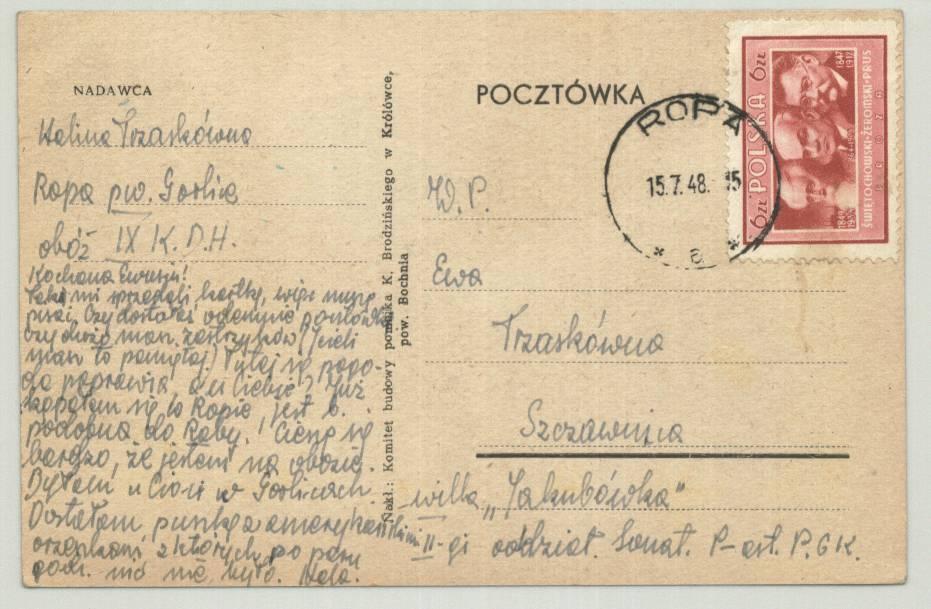 NADAWCA
Halina Trzaskówna
Ropa pw. Gorlice
obóz IX K.D.H.
Kochana Ewuniu!
Taką mi sprzedali kartkę, więc muszę
pisać. Czy dostałaś odemnie pocztówkę
czy dużo masz zastrzyków (jeśli
masz to pamiętaj.) Tutaj się pogo-
da poprawia, a u Ciebie? Już
kąpałam się w Ropie, jest b.
podobna do Raby. Cieszę się
bardzo, że jestem na obozie.
Byłam u Cioci w Gorlicach
Dostałam puszkę z amerykańskimi
orzeszkami z których po paru
godz. nic nie było. Hala.
Nakł.: Komitet budowy pomnika K. Brodzińskiego w Królówce,
pow. Bochnia
POCZTÓWKA
ROPA
15.7.48. 15
* a *
6 ZŁ POLSKA 6 ZŁ
1847 1912
1849
ŚWIĘTOCHOWSKI·ŻEROMSKI·PRUS
PROZA
W.P.
Ewa
Trzaskówna
Szczawnica
willa „Jakubówka”
II-gi oddział. Sanat. P-art. P.G.K.